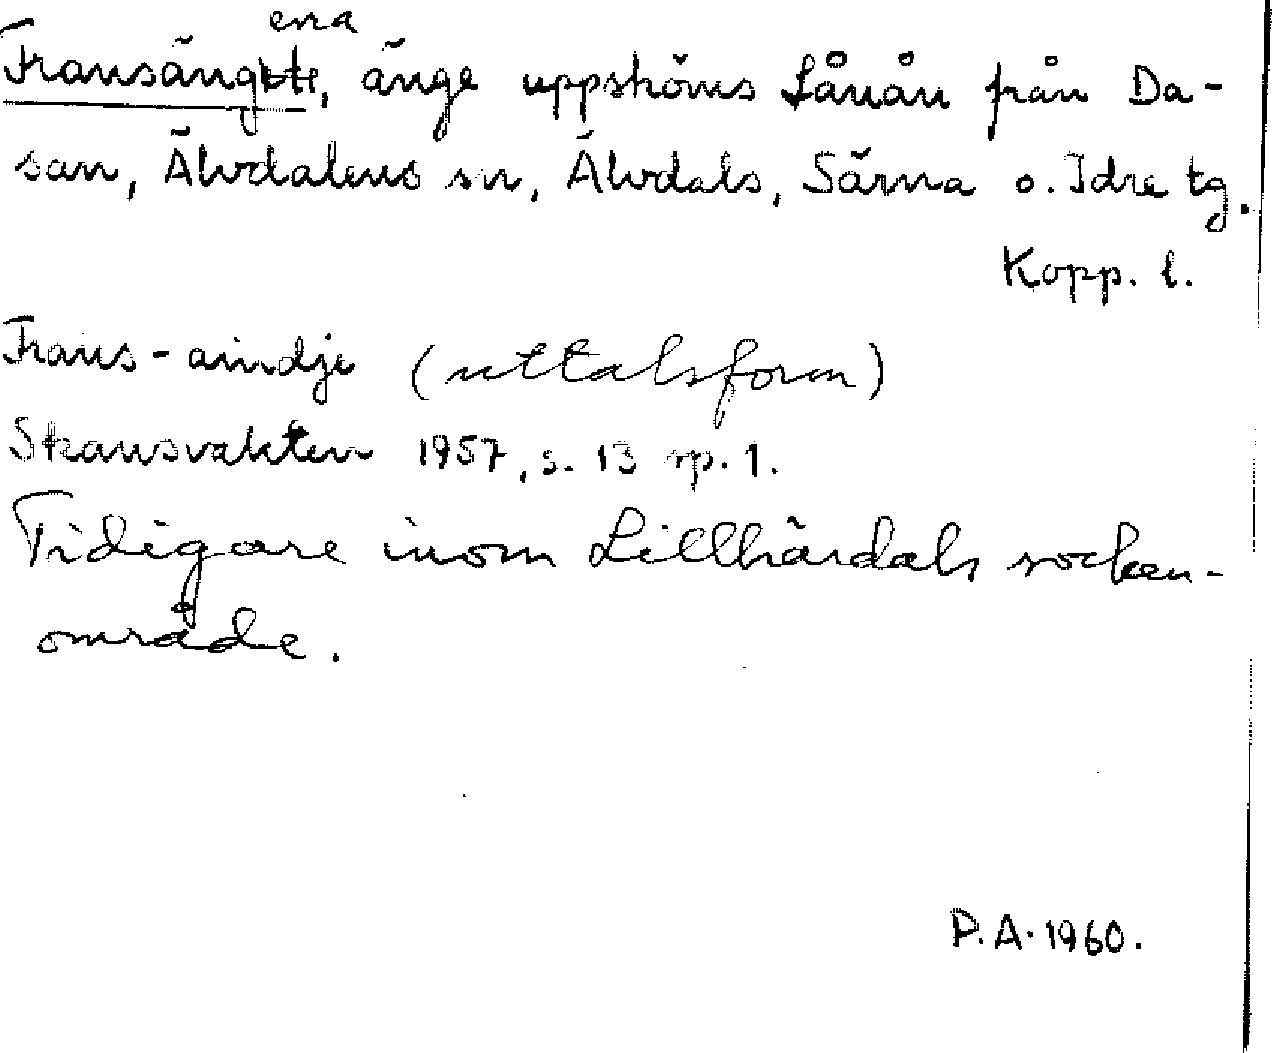 Fransängena, änge uppströms Lånån från Da-
san, Älvdalens sn, Älvdals, Särna o. Idre tg.
Kopp. l.
Frans-aindje (uttalsform)
Skansvakten 1957, s. 13 sp. 1.
Tidigare inom Lillhärdals socken-
område.
P.A. 1960.